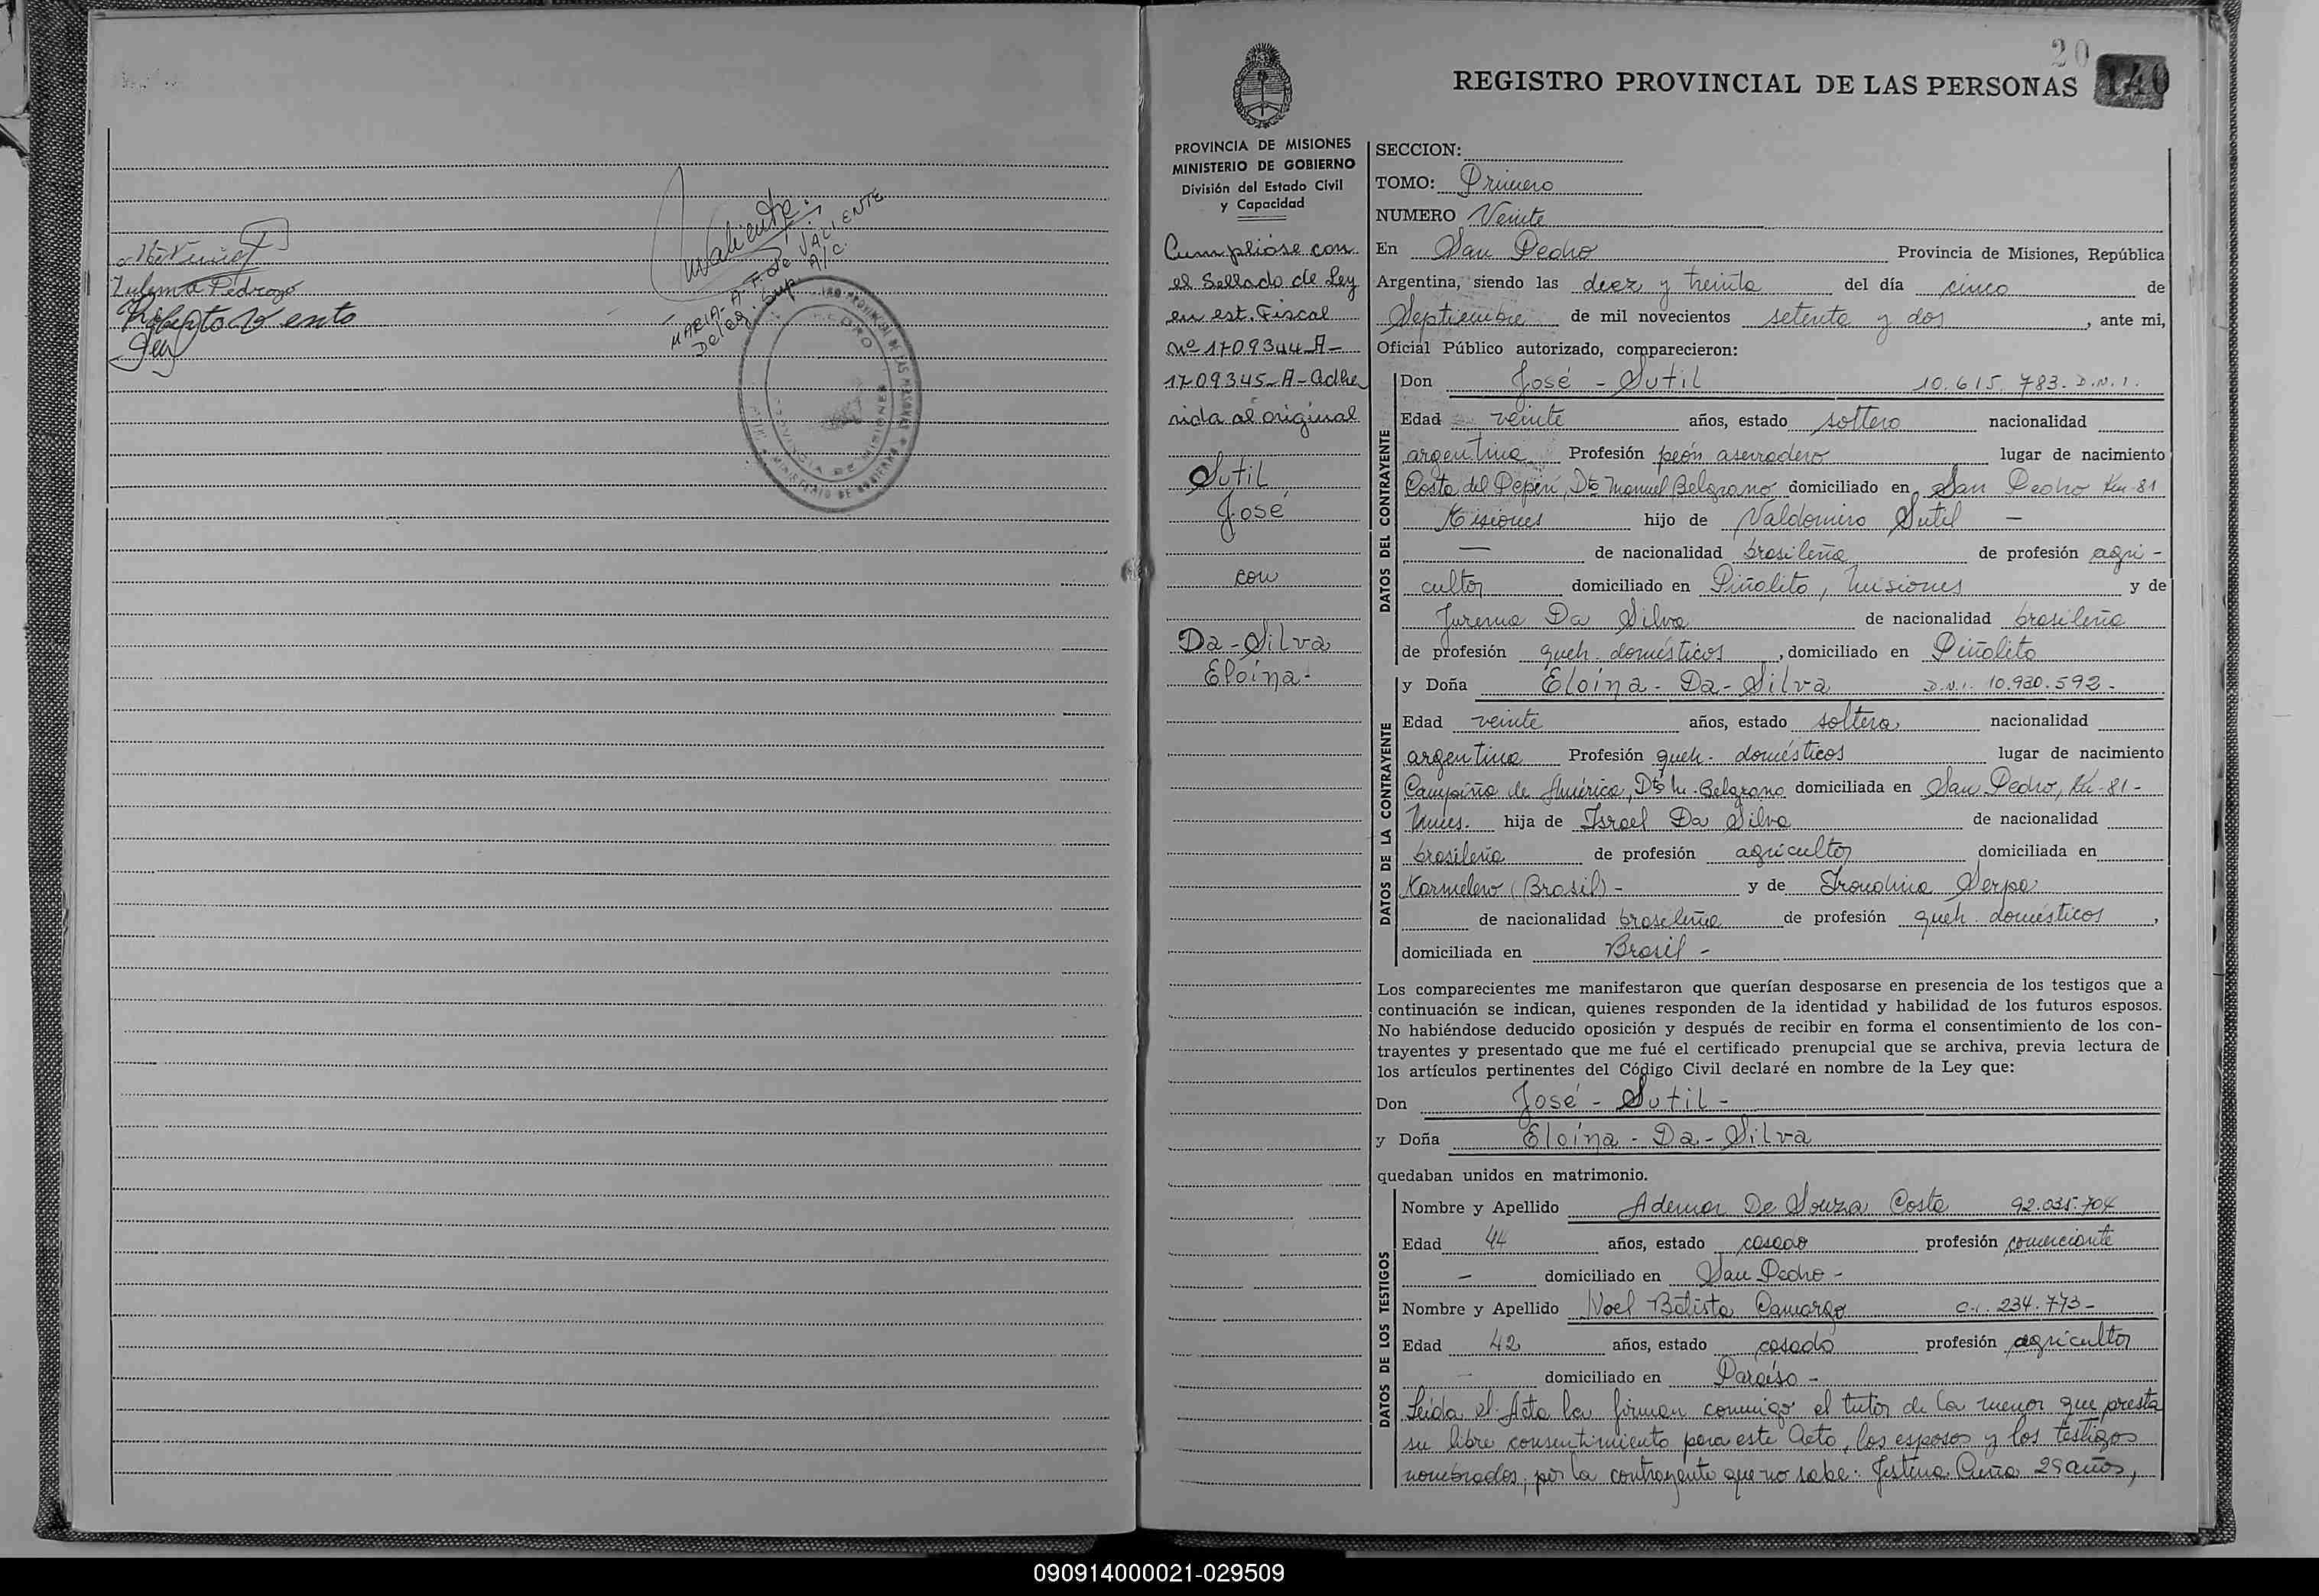 Zulema Pedrozo
Roberto Vento
Mvaliente.
MARIA-A-F. de VALIENTE
Deleg. Sup. A/C.
PROVINCIA DE MISIONES
MINISTERIO DE GOBIERNO
20
140
REGISTRO PROVINCIAL DE LAS PERSONAS
PROVINCIA DE MISIONES
MINISTERIO DE GOBIERNO
División del Estado Civil
y Capacidad
Cumplióse con
el Sellado de Ley
en est. Fiscal
Nº 1709344-A-
1709345-A-Adhe
rida al original
Sutil
José
con
Da-Silva
Eloína-
SECCION:
TOMO: Primero
NUMERO Veinte
En San Pedro Provincia de Misiones, República
Argentina, siendo las diez y treinta del día cinco de
Septiembre de mil novecientos setenta y dos, ante mi,
Oficial Público autorizado, comparecieron:
DATOS DEL CONTRAYENTE
Don José - Sutil 10.615.783. D.N.I.
Edad veinte años, estado soltero nacionalidad
argentina Profesión peón aserradero lugar de nacimiento
Costa del Pepirí, Dto Manuel Belgrano domiciliado en San Pedro Km-81
Misiones hijo de Valdomiro Sutil —
— de nacionalidad brasileña de profesión agri-
cultor domiciliado en Piñalito, Misiones y de
Jurema Da Silva de nacionalidad brasileña
de profesión queh. domésticos, domiciliado en Piñalito
DATOS DE LA CONTRAYENTE
y Doña Eloína - Da - Silva D.N.I. 10.920.592-
Edad veinte años, estado soltera nacionalidad
argentina Profesión queh. domésticos lugar de nacimiento
Campiña de América, Dto M. Belgrano domiciliada en San Pedro, Km-81-
hija de Israel Da Silva de nacionalidad
brasileña de profesión agricultor domiciliada en
(Brasil)- y de Serpa
de nacionalidad brasileña de profesión queh. domésticos,
domiciliada en Brasil -
Los comparecientes me manifestaron que querían desposarse en presencia de los testigos que a
continuación se indican, quienes responden de la identidad y habilidad de los futuros esposos.
No habiéndose deducido oposición y después de recibir en forma el consentimiento de los con-
trayentes y presentado que me fué el certificado prenupcial que se archiva, previa lectura de
los artículos pertinentes del Código Civil declaré en nombre de la Ley que:
Don José - Sutil -
y Doña Eloína - Da - Silva
quedaban unidos en matrimonio.
DATOS DE LOS TESTIGOS
Nombre y Apellido Ademar De Souza Costa 92.035.704
Edad 44 años, estado casado profesión comerciante
— domiciliado en San Pedro -
Nombre y Apellido Noel Batista Camargo C.I. 234.773-
Edad 42 años, estado casado profesión agricultor
— domiciliado en Paraíso -
Leída el Acta la firman conmigo el tutor de la menor que presta
su libre consentimiento para este Acto, los esposos y los testigos
nombrados, por la contrayente que no sabe: 29 años,
090914000021-029509